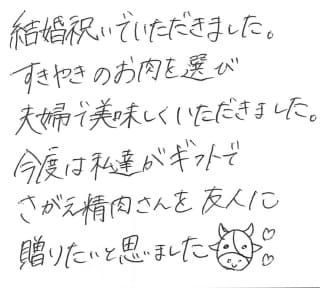 結婚祝いでいただきました。
すきやきのお肉を選び
夫婦で美味しくいただきました。
今度は私達がギフトで
さがえ精肉さんを友人に
贈りたいと思いました